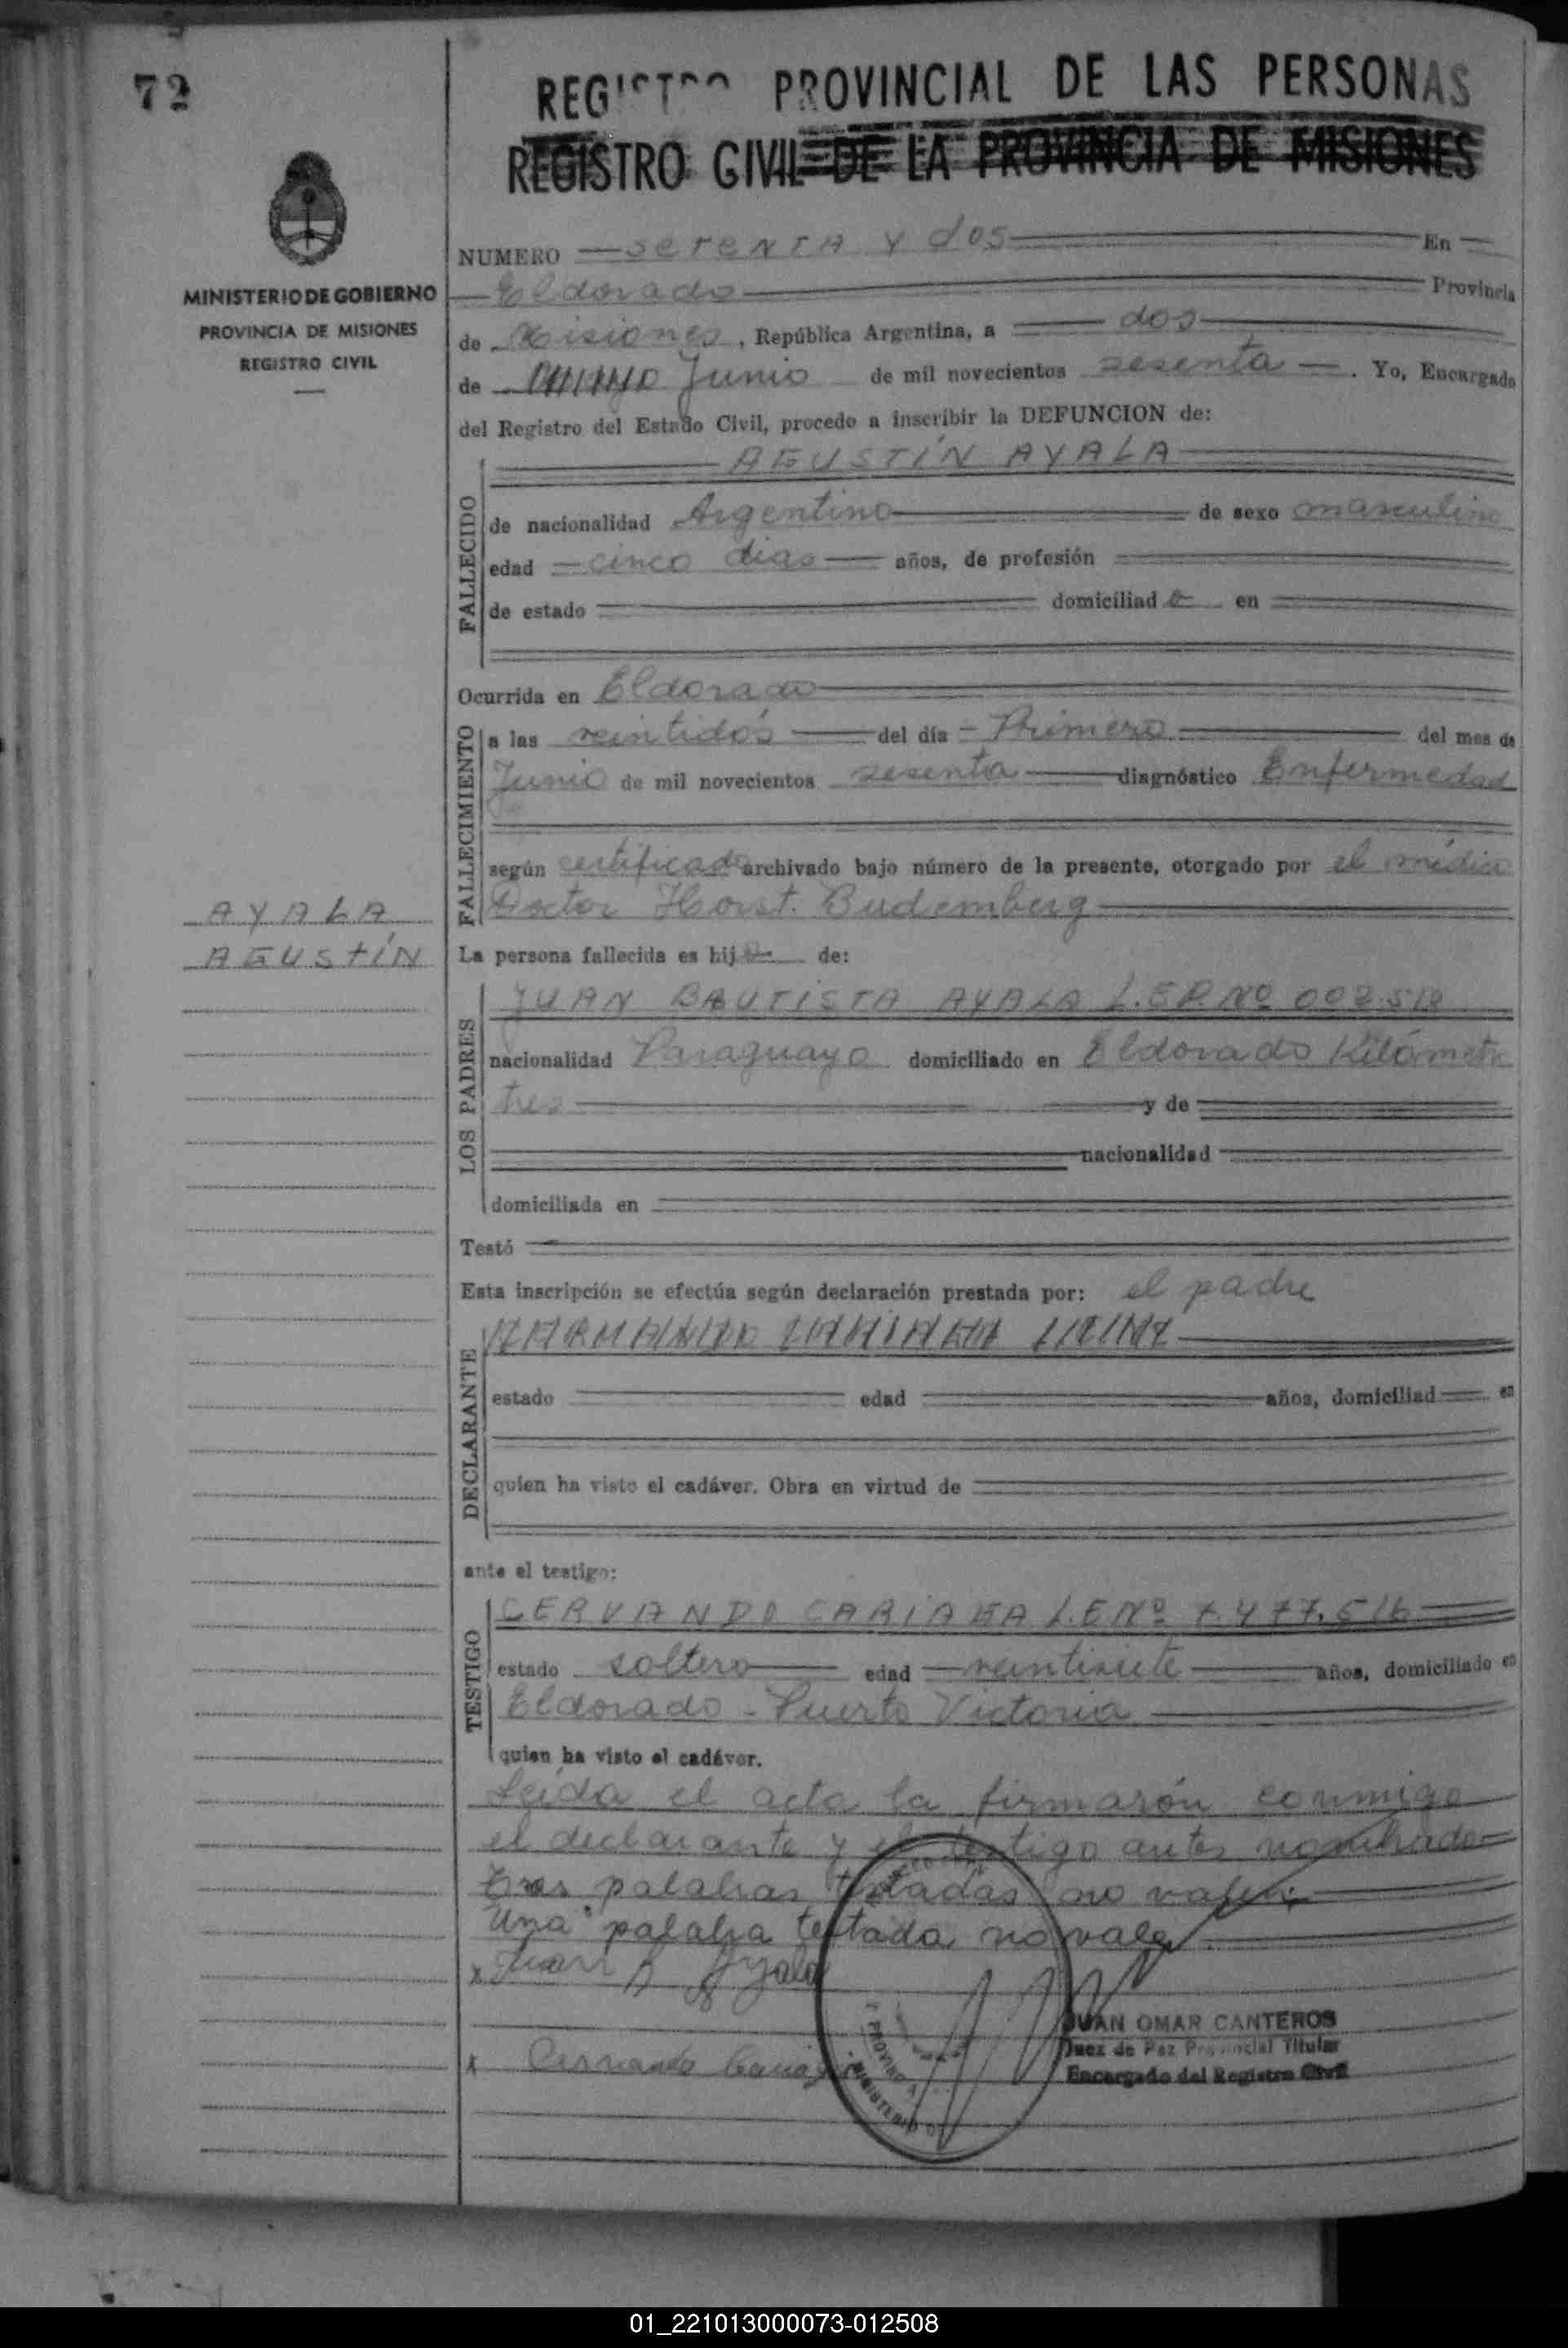 72
REGISTRO PROVINCIAL DE LAS PERSONAS
REGISTRO CIVIL DE LA PROVINCIA DE MISIONES
MINISTERIO DE GOBIERNO
PROVINCIA DE MISIONES
REGISTRO CIVIL
NUMERO setenta y dos En
Eldorado Provincia
de Misiones, República Argentina, a dos
de Junio de mil novecientos sesenta. Yo, Encargado
del Registro del Estado Civil, procedo a inscribir la DEFUNCION de:
AGUSTÍN AYALA
FALLECIDO
de nacionalidad Argentino de sexo masculino
edad cinco dias años, de profesión
de estado domiciliado en
Ocurrida en Eldorado
FALLECIMIENTO
a las veintidós del día Primero del mes de
Junio de mil novecientos sesenta diagnóstico Enfermedad
según certificado archivado bajo número de la presente, otorgado por el médico
Doctor Horst. Budemberg
AYALA
AGUSTÍN
La persona fallecida es hijo de:
LOS PADRES
JUAN BAUTISTA AYALA L.E.P. Nº 002.512
nacionalidad Paraguayo domiciliado en Eldorado Kilómetr
tres y de
nacionalidad
domiciliada en
Testó
Esta inscripción se efectúa según declaración prestada por: el padre
DECLARANTE
estado edad años, domiciliad en
quien ha visto el cadáver. Obra en virtud de
ante el testigo:
TESTIGO
CERVANDO CARIAGA L.E Nº 7.477.516
estado soltero edad veintisiete años, domiciliado en
Eldorado - Puerto Victoria
quien ha visto el cadáver.
Leída el acta la firmarón conmigo
el declarante y el testigo antes nombrado
Tres palabras testadas no valen.
Una palabra testada no vale
x Juan B Ayala
JUAN OMAR CANTEROS
Juez de Paz Provincial Titular
x Cervando Cariaga
Encargado del Registro Civil
PROVINCIA
MINISTERIO DE
01_221013000073-012508